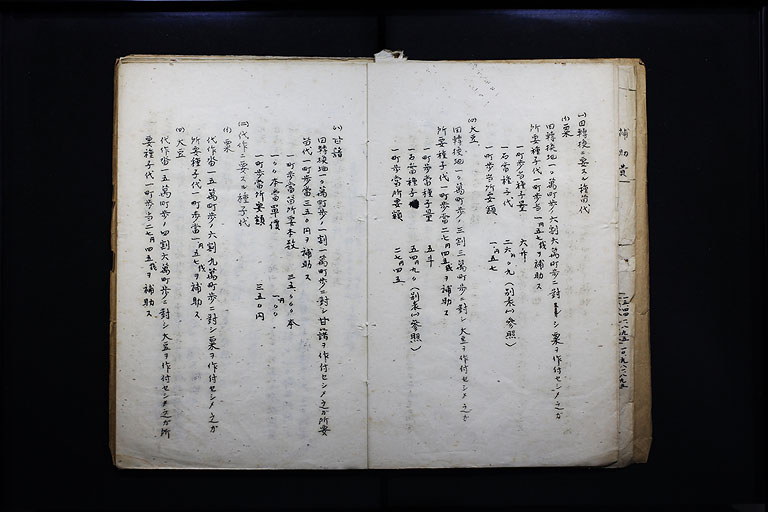 補助費
(一)田轉換ニ要スル種苗代
(イ)粟
田轉換地一〇萬町歩ノ六割六萬町歩ニ對シ粟ヲ作付セシメ之ガ
所要種子代一町歩当一円五七銭ヲ補助ス
一町歩当種子量 六升
一石当種子代 二六円〇九(別表(一)参照)
一町歩当所要額 一円五七
(ロ)大豆
田轉換地一〇萬町歩ノ三割三萬町歩ニ對シ大豆ヲ作付セシメ之ガ
所要種子代一町歩當二七円四五銭ヲ補助ス
一町歩當種子量 五斗
一石當種子 五四円九〇(別表(一)參照)
一町歩當所要額 二七円四五
(ハ)甘藷
田轉換地一〇萬町歩ノ一割一萬町歩ニ對シ甘藷ヲ作付セシメ之ガ所要
苗代一町歩當三五〇円ヲ補助ス
一町歩當苗所要本数 三五、〇〇〇本
一〇〇本當單價 一円〇〇
一町歩當所要額 三五〇円
(二)代作ニ要スル種子代
(イ)粟
代作當一五萬町歩ノ六割九萬町歩ニ對シ粟ヲ作付セシメ之ガ
所要種子代一町歩當一円五七銭ヲ補助ス
(ロ)大豆
代作當一五萬町歩ノ四割六萬町歩ニ對シ大豆ヲ作付セシメ之ガ所
要種子代一町歩当二七円四五銭ヲ補助ス